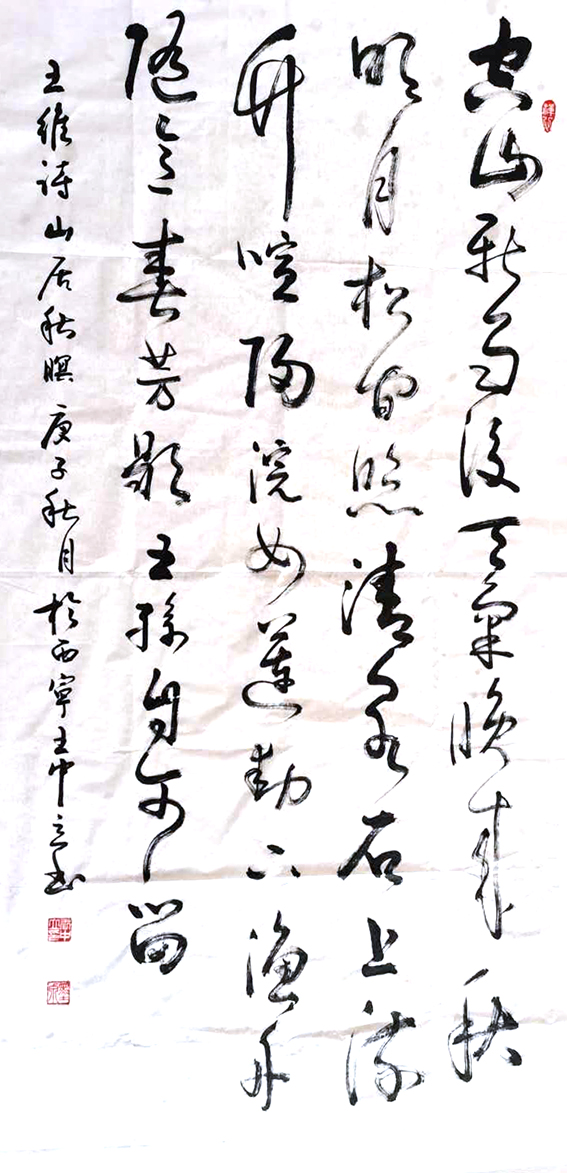 空山新雨後天氣晚來秋
明月松間照清泉石上流
竹喧歸浣女蓮動下漁舟
隨意春芳歇王孫自可留
王維詩山居秋暝庚子秋月於西寧王中立書